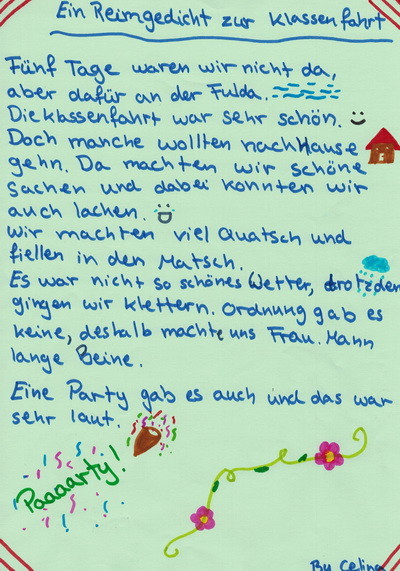 Ein Reimgedicht zur Klassenfahrt
Fünf Tage waren wir nicht da,
aber dafür an der Fulda.
Die klassenfahrt war sehr schön.
Doch manche wollten nach Hause
gehn. Da machten wir schöne
Sachen und dabei konnten wir
auch lachen.
Wir machten viel Quatsch und
fiellen in den Matsch.
Es war nicht so schönes Wetter, trotzdem
gingen wir klettern. Ordnung gab es
keine, deshalb machte uns Frau. Mann
lange Beine.
Eine Party gab es auch und das war
sehr laut.
Paaaarty!
By Celina